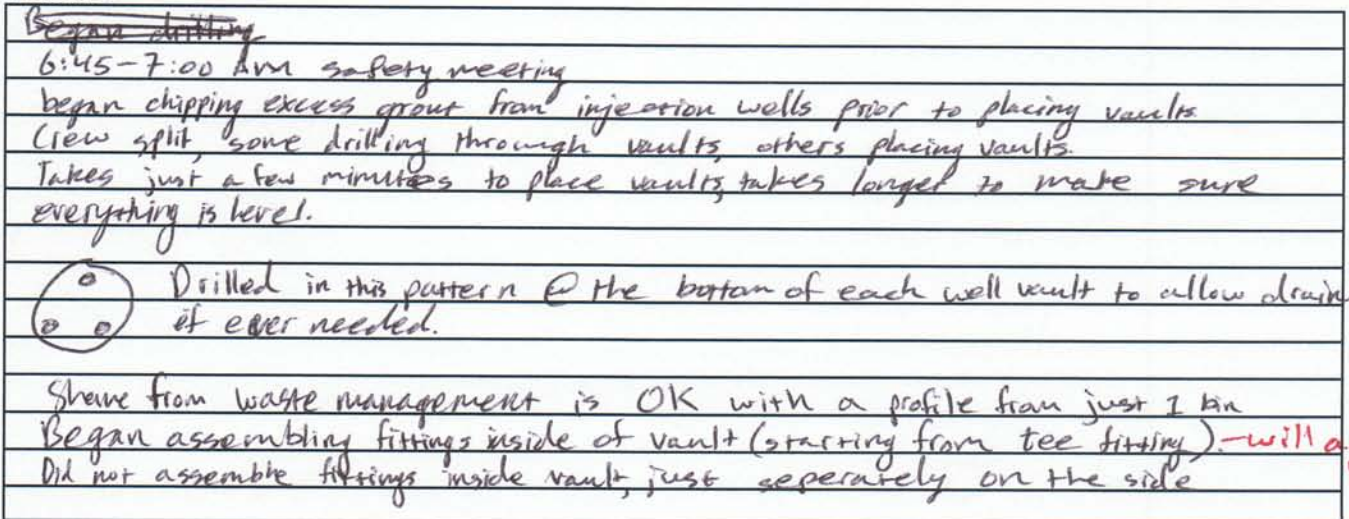 Began drilling
6:45-7:00 AM safety meeting
began chipping excess grout from injection wells prior to placing vaults.
Crew split, some drilling through vaults, others placing vaults.
Takes just a few minutes to place vaults, takes longer to make sure
everything is level.
Drilled in this pattern @ the bottom of each well vault to allow drain
if ever needed.
from waste management is OK with a profile from just 1 bin
Began assembling fittings inside of vault (starting from tee fitting). -will a
Did not assemble fittings inside vault, just seperately on the side